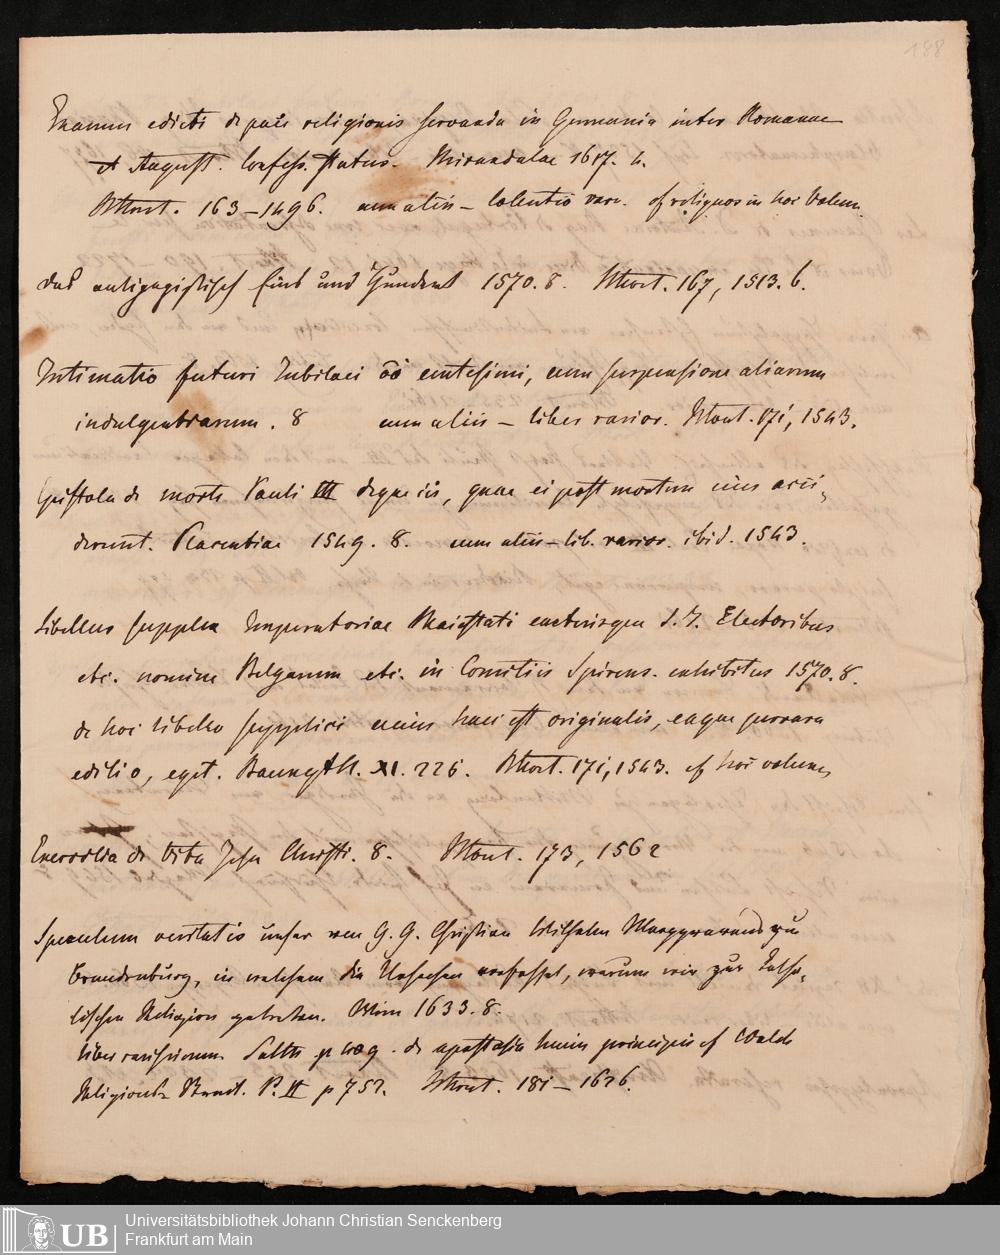 188
Examen edicti de pace religionis servanda in Germania inter Romanae
et August. Confess. status. Mirandulae 1617. 4.
163 – 1496. cum aliis – collectio rar. cf reliquos in hoc Volum.
das antipapistisch Eins und Hundert 1570. 8. 167, 1513. 6.
Intimatio futuri Jubilaei centesimi, cum suspensione aliarum
indulgentiarum. 8 cum aliis – liber rarior. 171, 1543.
Epistola de morte Pauli III deque iis, quae ei post mortem eius acci-
derunt. Placentiae 1549. 8. cum aliis – lib. rarior. ibid. 1543.
Libellus supplex Imperatoriae Maiestati caeterisque S. I. Electoribus
etc. nomine Belgarum etc. in Comitiis Spirens. exhibitus 1570. 8.
de hoc libello supplici cuius haec est originalis, eaque perrara
editio, egit. Baumgth. XI. 226. 171, 1543. cf hoc volumen
Exercitia de Vita Jesu Christi. 8. 173, 1562
Speculum veritatis unser von G. G. Christian Wilhelm Marggravens zu
Brandenburg, in welchem die Ursachen verfasset, warum wir zur Catho-
lischen Religion getreten. Wien 1633. 8.
liber rarissimus Salth p 409 de apostasia huius principis cf Walch
Religions P. II p 752. 181 – 1626.
Universitätsbibliothek Johann Christian Senckenberg
Frankfurt am Main
UB